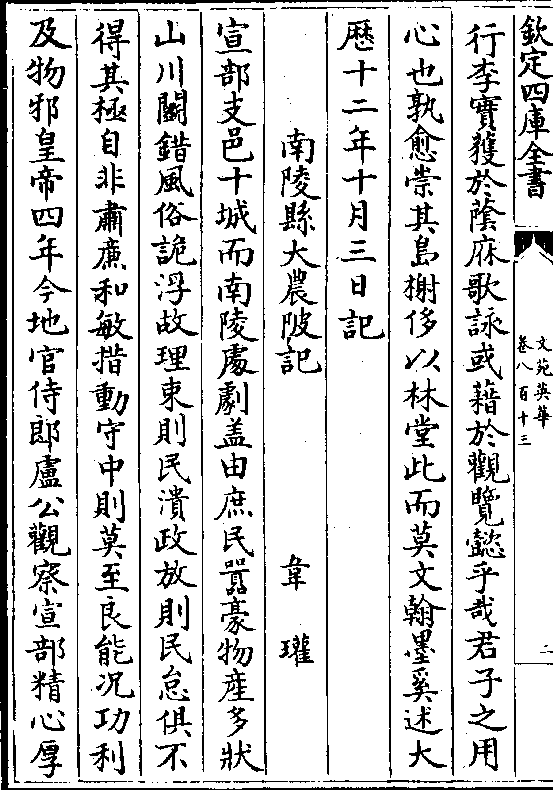 欽定四庫全書
文苑英華
卷八百十三
二
行李實獲於蔭庥歌詠或藉於觀覽懿乎哉君子之用
心也孰愈崇其島榭侈以林堂此而莫文翰墨奚述大
厯十二年十月三日記
南陵縣大農陂記
韋瓘
宣部支邑十城而南陵處劇盖由庶民嚚豪物産多狀
山川闗錯風俗詭浮故理束則民潰政放則民怠俱不
得其極自非肅亷和敏措動守中則莫至良能况功利
及物邪皇帝四年今地官侍郎盧公觀察宣部精心厚